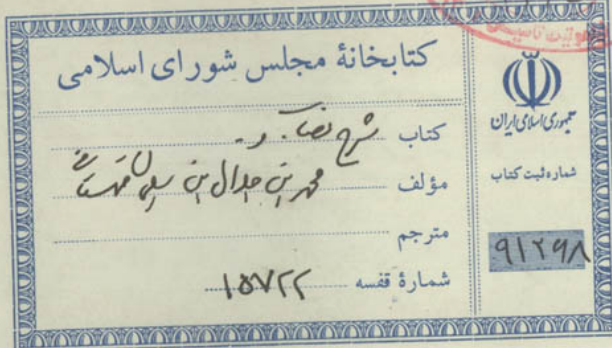 کتابخانهٔ مجلس شورای اسلامی
کتاب شرح نصاب
مؤلف محمد بن جلال بن سلیمان قهستانی
مترجم
شمارهٔ قفسه ۱۵۷۲۲
جمهوری اسلامی ایران
شماره ثبت کتاب
۹۱۲۶۸